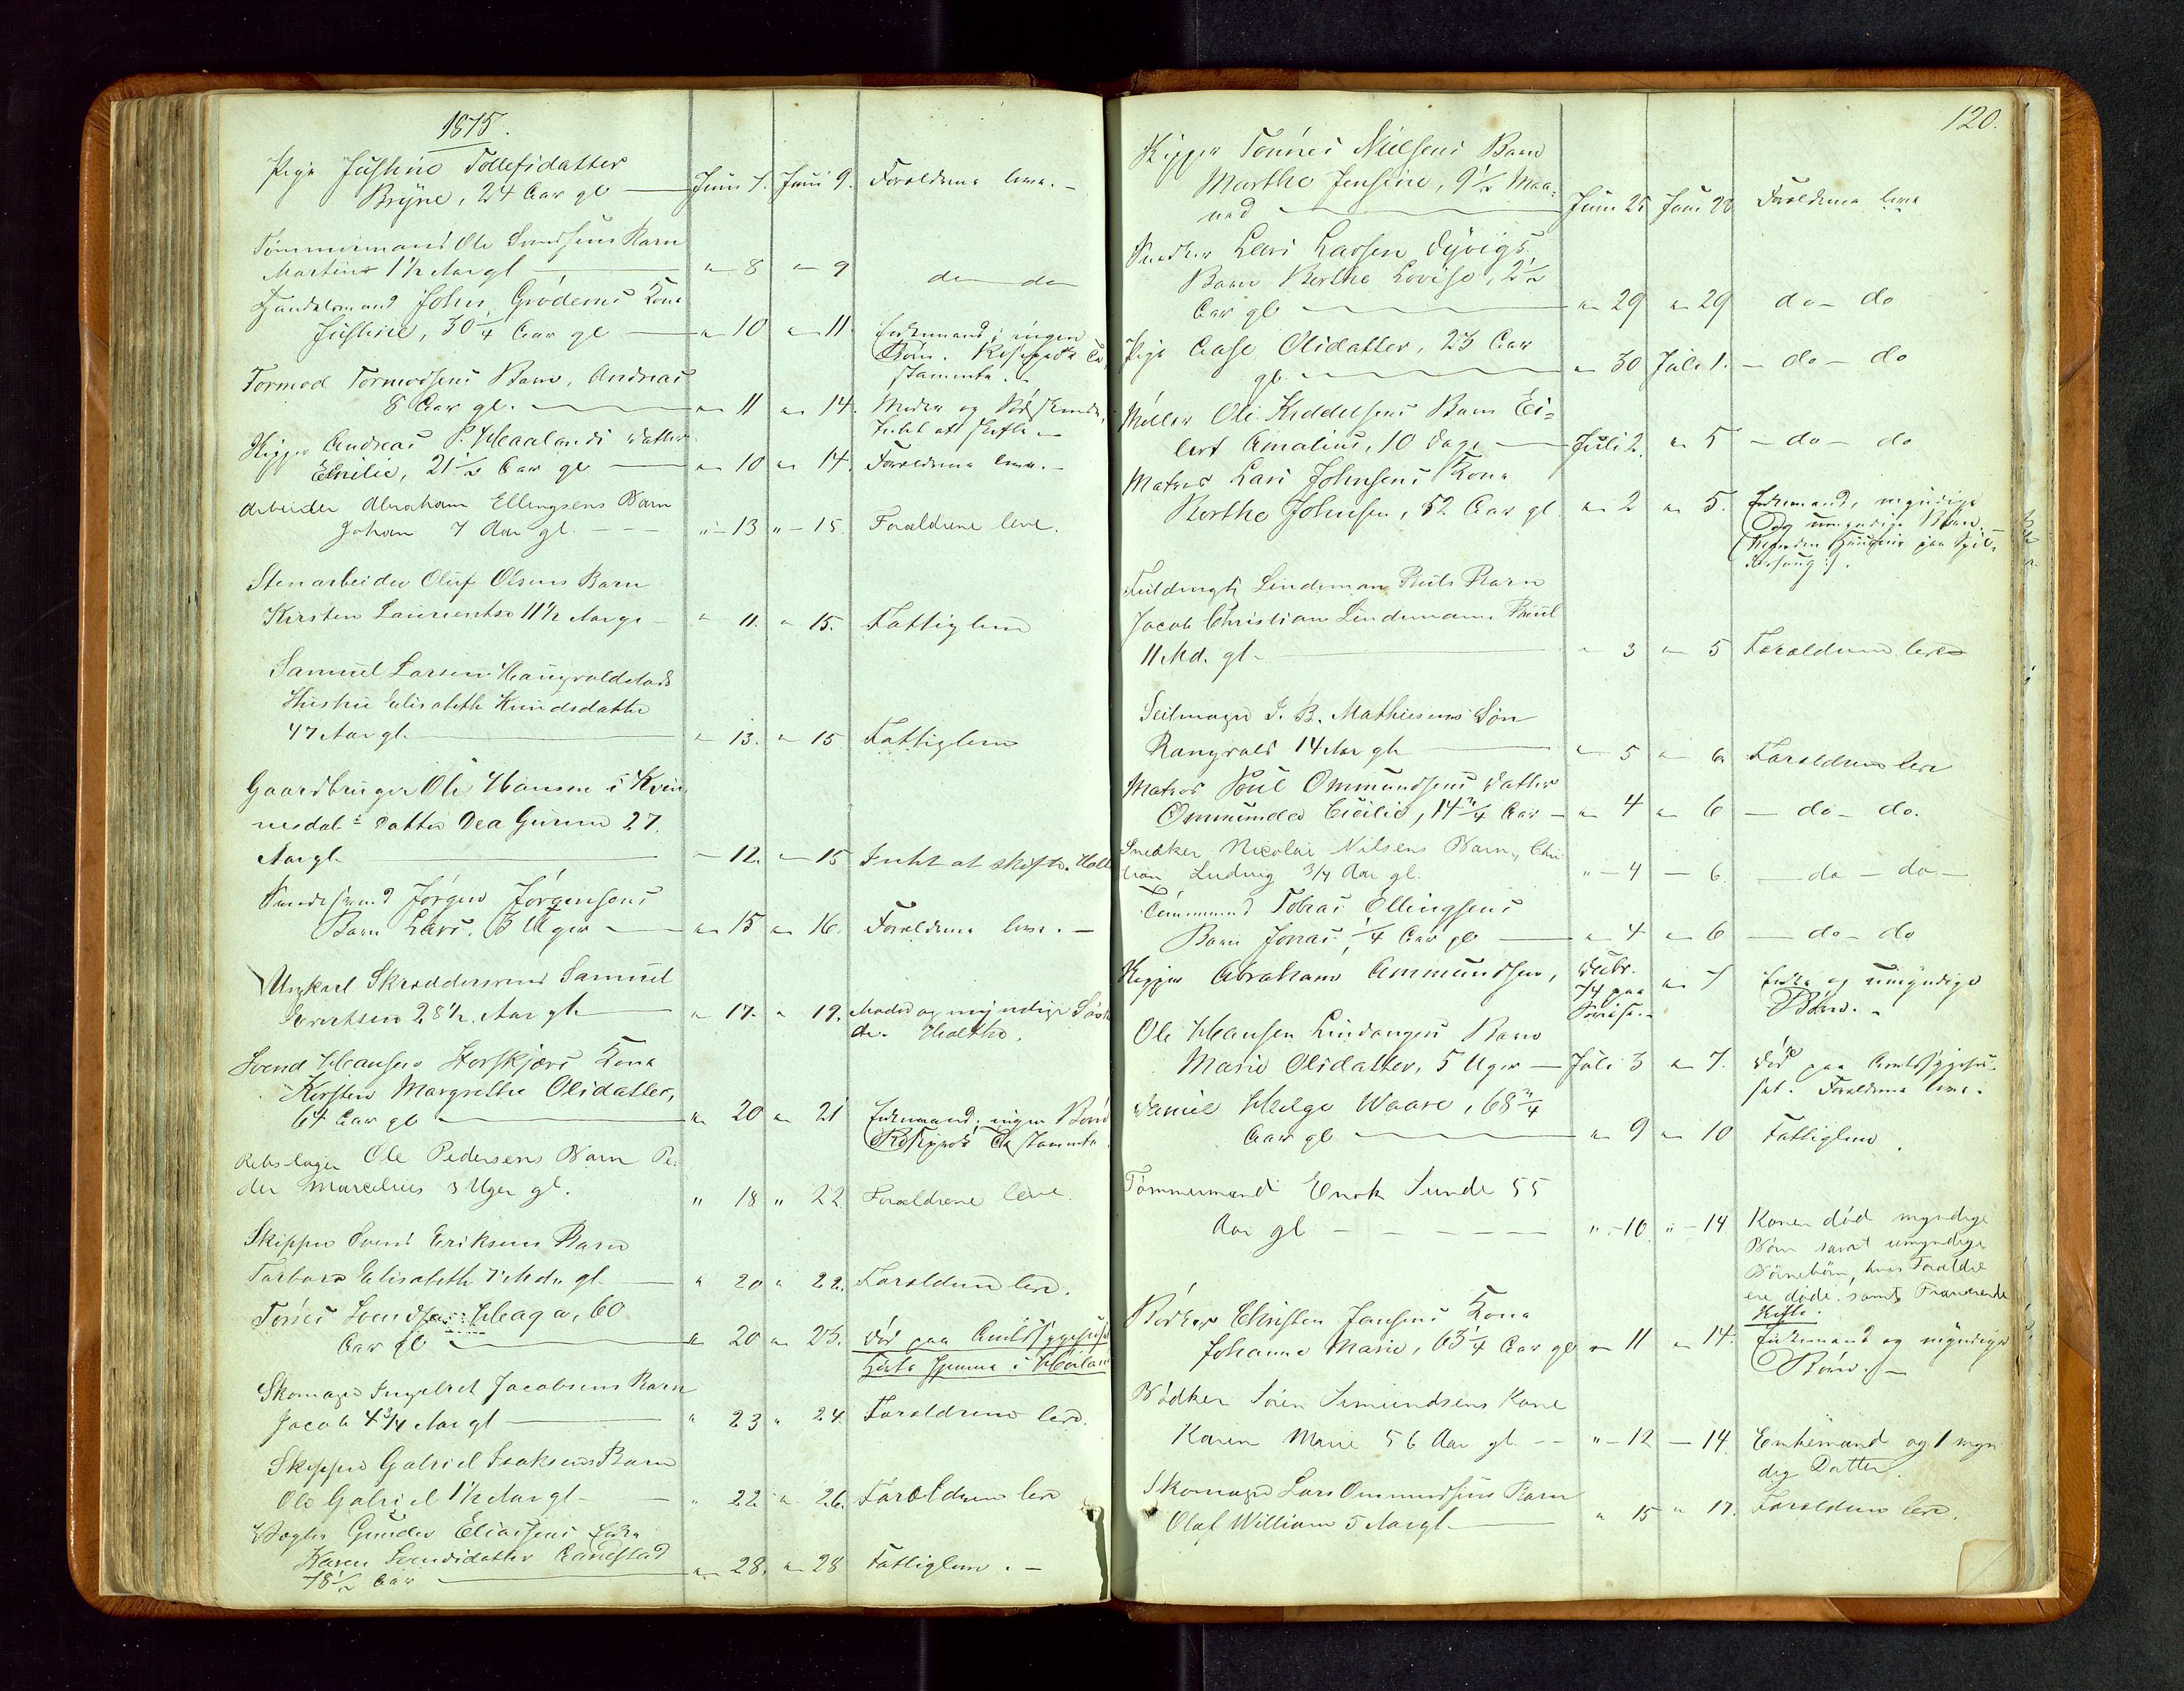 1875.
Pige Justine Tollefsdatter
Bryne, 24 Aar gl — Juni 7. Juni 9. Forældrene leve. –
Tømmermand Ole Svendsens Barn
Martine 1½ Aar gl — " 8 " 9 do do
Handelsmand John Grødems Kone
Justine, 30¼ Aar gl — " 10 " 11 Enkemand; ingen
Børn.
Tormod Tormodsens Barn, Andreas
8 Aar gl. — " 11 " 14. Moder og Sødskende,
Intet att skifte –
Skipper Andreas P. Haalands Datter
Emilie, 21½ Aar gl — " 10 " 14. Forældrene leve. –
Arbeider Abraham Ellingsens Barn
Johan 7 Aar gl. – – " - 13 " - 15. Forældrene leve.
Stenarbeider Oluf Olsens Barn
Kirsten Laurentse 11½ Aar gl – " 11. " 15. Fattiglem
Samuel Larsen Haugvaldstads
Hustru Elisabeth Knudsdatter
47 Aar gl. — " 13. " 15 Fattiglem
Gaardbruger Ole Hansen i Kvin
nesdal's Datter Dea Gurine 27.
Aar gl. — " 12. " 15 Intet at skifte.
Jørgen Jørgensens
Barn Lars. 3 Uger — " 15 " 16. Forældrene leve. –
Ungkarl Skræddersvend Samuel
28½ Aar gl — " 17. " 19. Moder og myndige Sødsk
de.
Svend Hansen Storskjærs Kone
Kirsten Margrethe Olsdatter,
64 Aar gl — " 20 " 21 Enkemand; ingen Børn
Rebslager Ole Pedersens Barn Pe-
der Marcelius 3 Uger gl. " 18 " 22. Forældrene leve.
Skipper Svend Eriksens Barn
Torbora Elisabeth 7 Mdr gl. — " 20 " 22. Forældrene leve.
Tønes Svendsen Haga, 60
Aar gl — " 20 " 23. Død paa Amtssygehuset
Skomager Ingebret Jacobsens Barn
Jacob 4¾ Aar gl — " 23 " 24. Forældrene leve.
Skipper Gabriel Isaksens Barn
Ole Gabriel 1½ Aar gl. — " 22 " 26. Forældrene leve
Vægter Gunder Eliassens Enke
Karen Svendsdatter Aanestad
78½ Aar — " 28. " 28 Fattiglem. –
120.
Skipper Tønnes Nielsens Barn
Marthe Jensine, 9½ Maa=
ned — Juni 25 Juni 28 Forældrene leve
Snedker Lars Larsen Dyvigs
Barn Berthe Lovise, 2½
Aar gl — " 29 " 29 do – do
Pige Aase Olsdatter, 23 Aar
gl. — " 30 Juli 1. – do – do
Møller Ole Kiddelsens Barn Ei=
lert Amalius, 10 Dage — Juli 2. " 5 – do – do
Matros Lars Johnsens Kone
Berthe Johnsen, 52 Aar gl. " 2 " 5. Enkemand, myndige
og umyndige Børn. –
Fuldmægtig Lindeman Ruls Barn
Jacob Christian Lindemann
11 Md. gl. — " 3 " 5 Forældrene leve
Seilmager J. B. Mathiesens Søn
Rangvald 14 Aar gl. — " 5 " 6 Forældrene leve
Matros Poul Ommundsens Datter
Ommundea Cicilie, 14¾ Aar – " 4 " 6 – do – do.
Snedker Nicolai Nilsens Barn, Chri
tian Ludvig ¾ Aar gl. " - 4 – 6 – do – do –
Tømmermand Tobias Ellingsens
Barn Jonas, ¼ Aar gl — " 4 " 6 – do – do
Skipper Abraham Ammundsen, Decbr.
74 paa " 7 Enke og umyndige
Børn. –
Ole Hansen Lindangers Barn
Marie Olsdatter, 5 Uger — Juli 3 " 7. Død paa Amtssygehu-
set. Forældrene leve.
Daniel Helge Waare, 68¾
Aar gl — " 9 " 10 Fattiglem.
Tømmermand Enok Sunde 55
Aar gl – – – – – " - 10. " - 14 Konen død myndige
Børn samt umyndige
Børnebørn, hvis Forældre
ere døde. samt Fraværende
Skifte.
Bødker Christen Jansens Kone
Johanne Marie, 63¼ Aar gl " 11 " 14. Enkemand og myndige
Børn. –
Bødker Sören Simundsens Kone
Karen Marie 56 Aar gl. – – " - 12 – 14. Enkemand og 1 myn
dig Datter.
Skomager Lars Ommundsens Barn
Olaf William 5 Aar gl. — " 15 " 17. Forældrene leve.